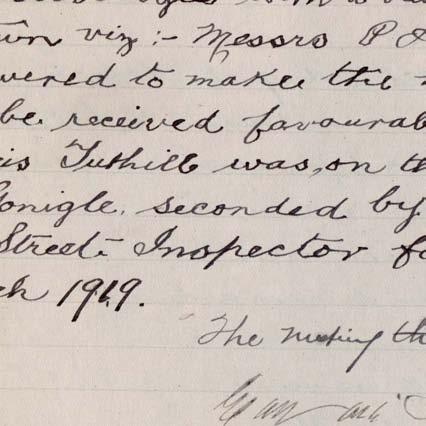 viz :- Messrs P
to make the
be received favourab
is Tuthill was, on th
onigle, seconded by
Street- Inspector fo
ch 1919.
The meeting th